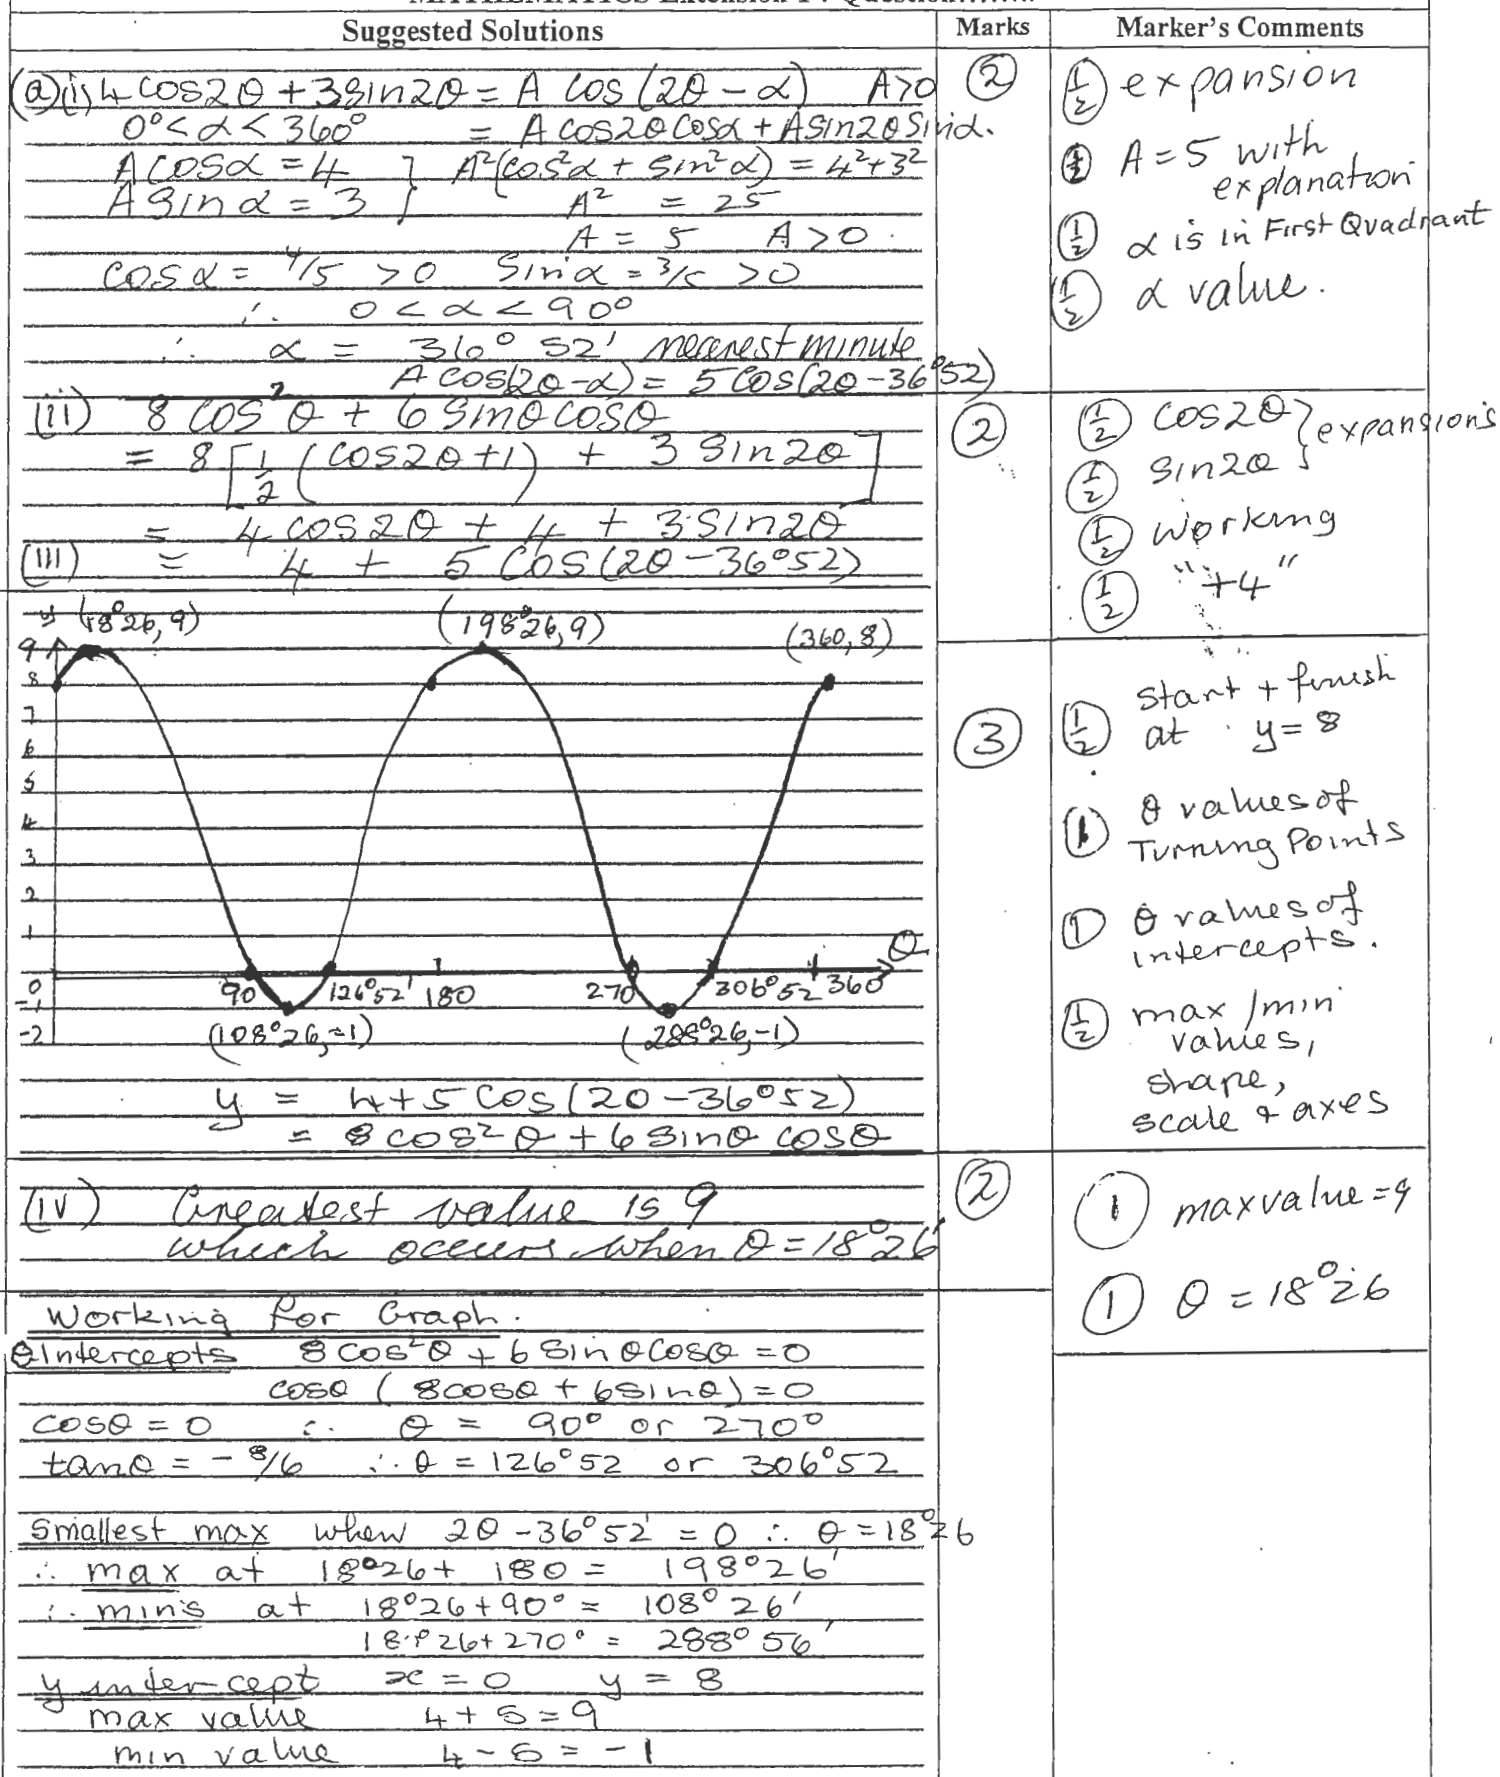 Suggested Solutions
Marks
Marker's Comments
(a)(i) 4 cos2θ + 3sin2θ = A cos(2θ - α) A>0
0° < α < 360° = A cos2θ cosα + A sin2θ sinα.
A cosα = 4 } A²(cos²α + sin²α) = 4² + 3²
A sinα = 3 } A² = 25
A = 5 A > 0.
cosα = 4/5 > 0 sinα = 3/5 > 0
∴ 0 < α < 90°
∴ α = 36° 52' nearest minute
A cos(2θ - α) = 5 cos(2θ - 36°52)
②
½ expansion
① A = 5 with
explanation
½ α is in First Quadrant
½ α value.
(ii) 8 cos²θ + 6 sinθcosθ
= 8[½(cos2θ+1) + 3 sin2θ]
= 4 cos2θ + 4 + 3 sin2θ
(iii) = 4 + 5 cos(2θ - 36°52)
②
½ cos2θ } expansions
½ sin2θ }
½ working
½ "+4"
y (18°26, 9) (198°26, 9) (360, 8)
9
8
7
6
5
4
3
2
1
0
-1
-2
90 126°52' 180 270 306°52' 360 θ
(108°26, -1) (288°26, -1)
y = 4 + 5 cos(2θ - 36°52)
= 8 cos²θ + 6 sinθ cosθ
③
½ start + finish
at y = 8
① θ values of
Turning Points
① θ values of
intercepts.
½ max/min
values,
shape,
scale + axes
(iv) Greatest value is 9
which occurs when θ = 18°26'
②
① max value = 9
① θ = 18°26
Working for Graph.
θ Intercepts 8 cos²θ + 6 sinθcosθ = 0
cosθ (8cosθ + 6sinθ) = 0
cosθ = 0 ∴ θ = 90° or 270°
tanθ = - 8/6 ∴ θ = 126°52 or 306°52
Smallest max when 2θ - 36°52' = 0 ∴ θ = 18°26
∴ max at 18°26 + 180 = 198°26'
∴ mins at 18°26 + 90° = 108° 26'
18°26 + 270° = 288° 56'
y intercept x = 0 y = 8
max value 4 + 5 = 9
min value 4 - 5 = -1